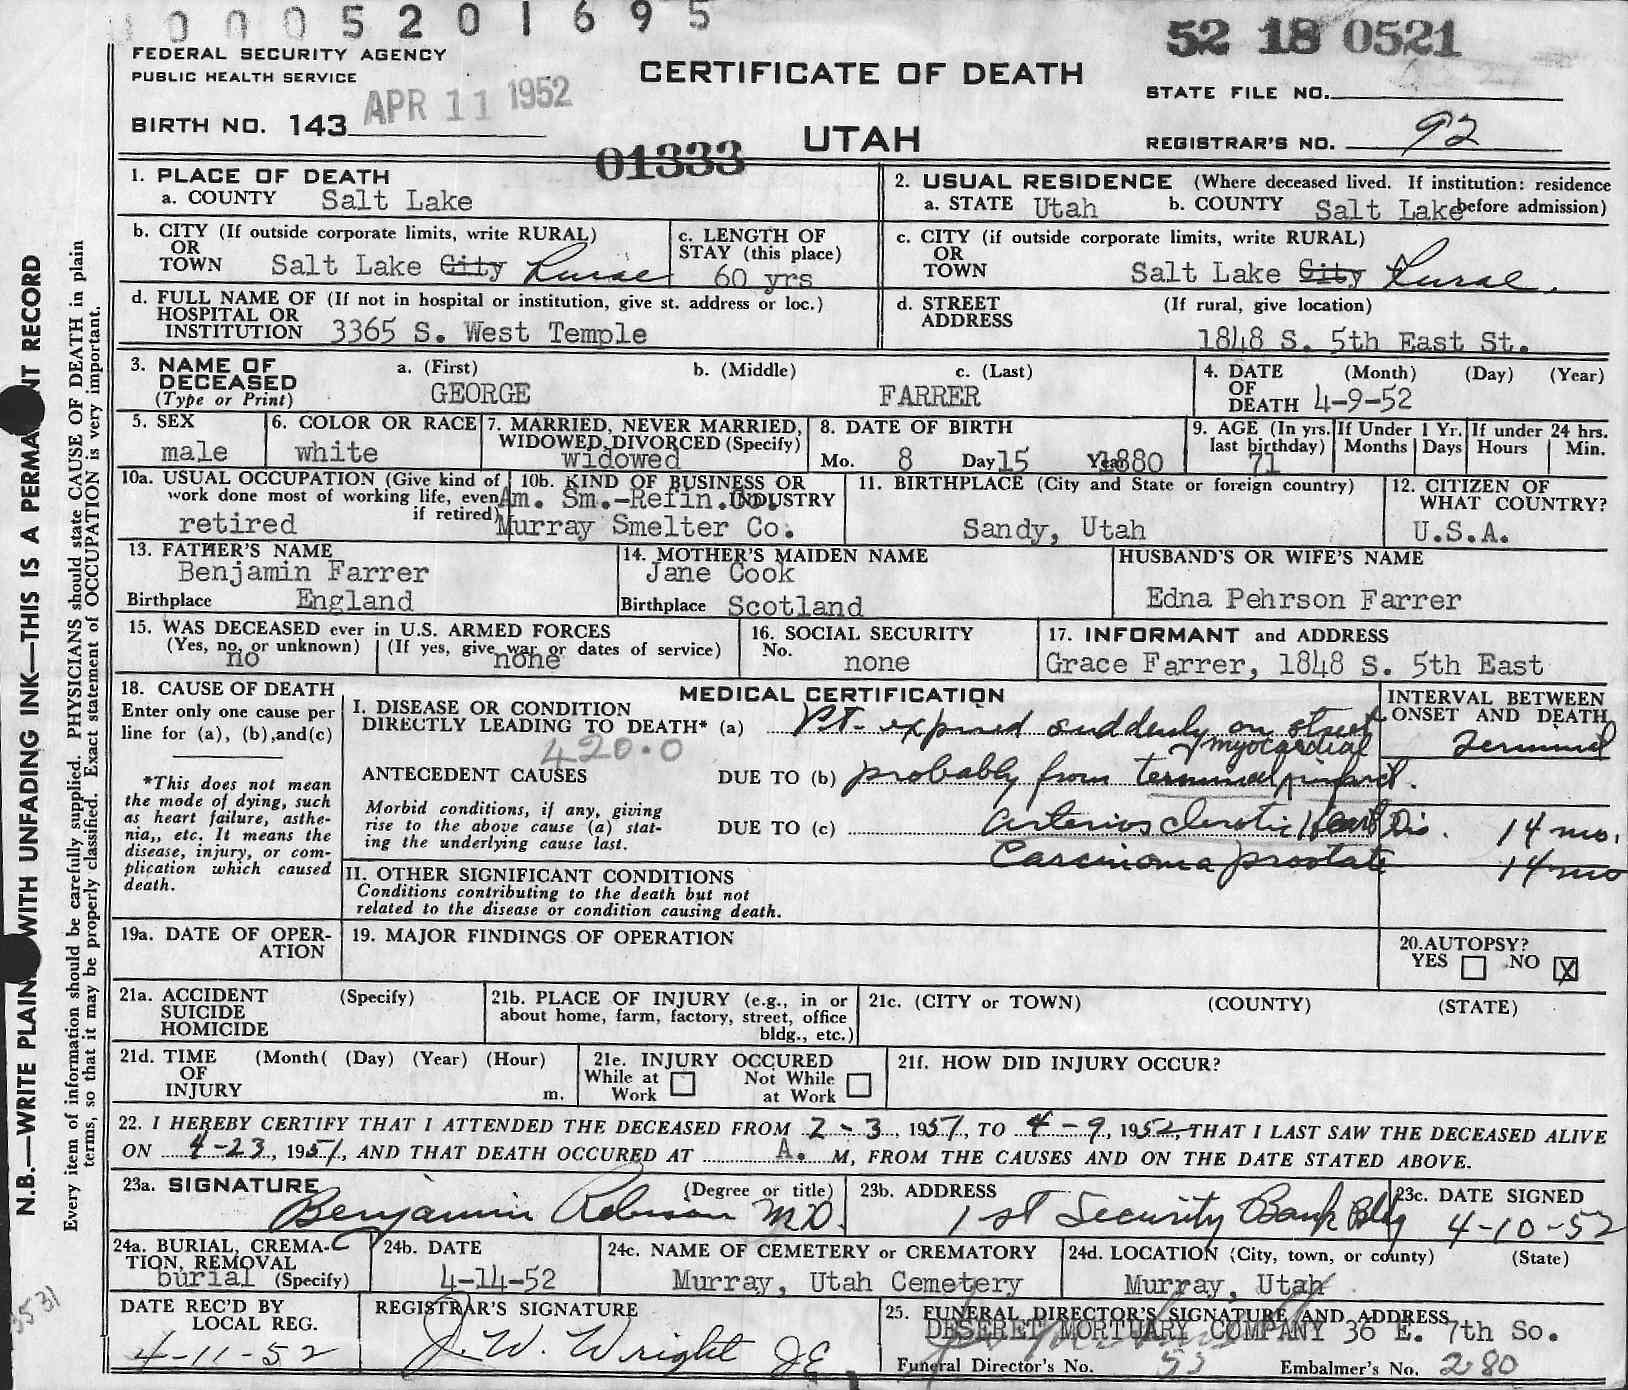 0005201695
52 18 0521
FEDERAL SECURITY AGENCY
PUBLIC HEALTH SERVICE
CERTIFICATE OF DEATH
STATE FILE NO.
APR 11 1952
BIRTH NO. 143
UTAH
REGISTRAR'S NO. 92
01333
1. PLACE OF DEATH
a. COUNTY Salt Lake
2. USUAL RESIDENCE (Where deceased lived. If institution: residence before admission)
a. STATE Utah b. COUNTY Salt Lake
b. CITY (If outside corporate limits, write RURAL)
OR
TOWN Salt Lake City Rural
c. LENGTH OF
STAY (this place)
60 yrs
c. CITY (if outside corporate limits, write RURAL)
OR
TOWN Salt Lake City Rural.
d. FULL NAME OF (If not in hospital or institution, give st. address or loc.)
HOSPITAL OR
INSTITUTION 3365 S. West Temple
d. STREET (If rural, give location)
ADDRESS
1848 S. 5th East St.
3. NAME OF
DECEASED
(Type or Print)
a. (First) b. (Middle) c. (Last)
GEORGE FARRER
4. DATE (Month) (Day) (Year)
OF
DEATH 4-9-52
5. SEX
male
6. COLOR OR RACE
white
7. MARRIED, NEVER MARRIED,
WIDOWED, DIVORCED (Specify)
widowed
8. DATE OF BIRTH
Mo. 8 Day 15 Year 1880
9. AGE (In yrs. last birthday)
71
If Under 1 Yr.
Months Days
If under 24 hrs.
Hours Min.
10a. USUAL OCCUPATION (Give kind of
work done most of working life, even
if retired)
retired
10b. KIND OF BUSINESS OR
INDUSTRY
Am. Sm.-Refin. Co.
Murray Smelter Co.
11. BIRTHPLACE (City and State or foreign country)
Sandy, Utah
12. CITIZEN OF
WHAT COUNTRY?
U.S.A.
13. FATHER'S NAME
Benjamin Farrer
Birthplace England
14. MOTHER'S MAIDEN NAME
Jane Cook
Birthplace Scotland
HUSBAND'S OR WIFE'S NAME
Edna Pehrson Farrer
15. WAS DECEASED ever in U.S. ARMED FORCES
(Yes, no, or unknown) (If yes, give war or dates of service)
no none
16. SOCIAL SECURITY
No.
none
17. INFORMANT and ADDRESS
Grace Farrer, 1848 S. 5th East
18. CAUSE OF DEATH
Enter only one cause per
line for (a), (b), and (c)
*This does not mean
the mode of dying, such
as heart failure, asthe-
nia,, etc. It means the
disease, injury, or com-
plication which caused
death.
MEDICAL CERTIFICATION
I. DISEASE OR CONDITION
DIRECTLY LEADING TO DEATH* (a) Pt. expired suddenly on street
420.0
INTERVAL BETWEEN
ONSET AND DEATH
Terminal
ANTECEDENT CAUSES
DUE TO (b) probably from terminal myocardial infarct.
Morbid conditions, if any, giving
rise to the above cause (a) stat-
ing the underlying cause last.
DUE TO (c) Arteriosclerotic Heart Dis. 14 mo.
Carcinoma prostate 14 mo
II. OTHER SIGNIFICANT CONDITIONS
Conditions contributing to the death but not
related to the disease or condition causing death.
19a. DATE OF OPER-
ATION
19. MAJOR FINDINGS OF OPERATION
20. AUTOPSY?
YES NO X
21a. ACCIDENT (Specify)
SUICIDE
HOMICIDE
21b. PLACE OF INJURY (e.g., in or
about home, farm, factory, street, office
bldg., etc.)
21c. (CITY or TOWN) (COUNTY) (STATE)
21d. TIME (Month( (Day) (Year) (Hour)
OF
INJURY m.
21e. INJURY OCCURED
While at Work Not While at Work
21f. HOW DID INJURY OCCUR?
22. I HEREBY CERTIFY THAT I ATTENDED THE DECEASED FROM 2-3, 1951, TO 4-9, 1952, THAT I LAST SAW THE DECEASED ALIVE
ON 4-23, 1951, AND THAT DEATH OCCURED AT A. M, FROM THE CAUSES AND ON THE DATE STATED ABOVE.
23a. SIGNATURE (Degree or title)
Benjamin Robison M.D.
23b. ADDRESS
1st Security Bank Bldg
23c. DATE SIGNED
4-10-52
24a. BURIAL, CREMA-
TION, REMOVAL
burial (Specify)
24b. DATE
4-14-52
24c. NAME OF CEMETERY or CREMATORY
Murray, Utah Cemetery
24d. LOCATION (City, town, or county) (State)
Murray, Utah
DATE REC'D BY
LOCAL REG.
4-11-52
REGISTRAR'S SIGNATURE
J. W. Wright JE
25. FUNERAL DIRECTOR'S SIGNATURE AND ADDRESS
DESERET MORTUARY COMPANY 36 E. 7th So.
Funeral Director's No. 53 Embalmer's No. 280
3531
N.B.—WRITE PLAIN WITH UNFADING INK—THIS IS A PERMA NT RECORD
Every item of information should be carefully supplied. PHYSICIANS should state CAUSE OF DEATH in plain
terms, so that it may be properly classified. Exact statement of OCCUPATION is very important.